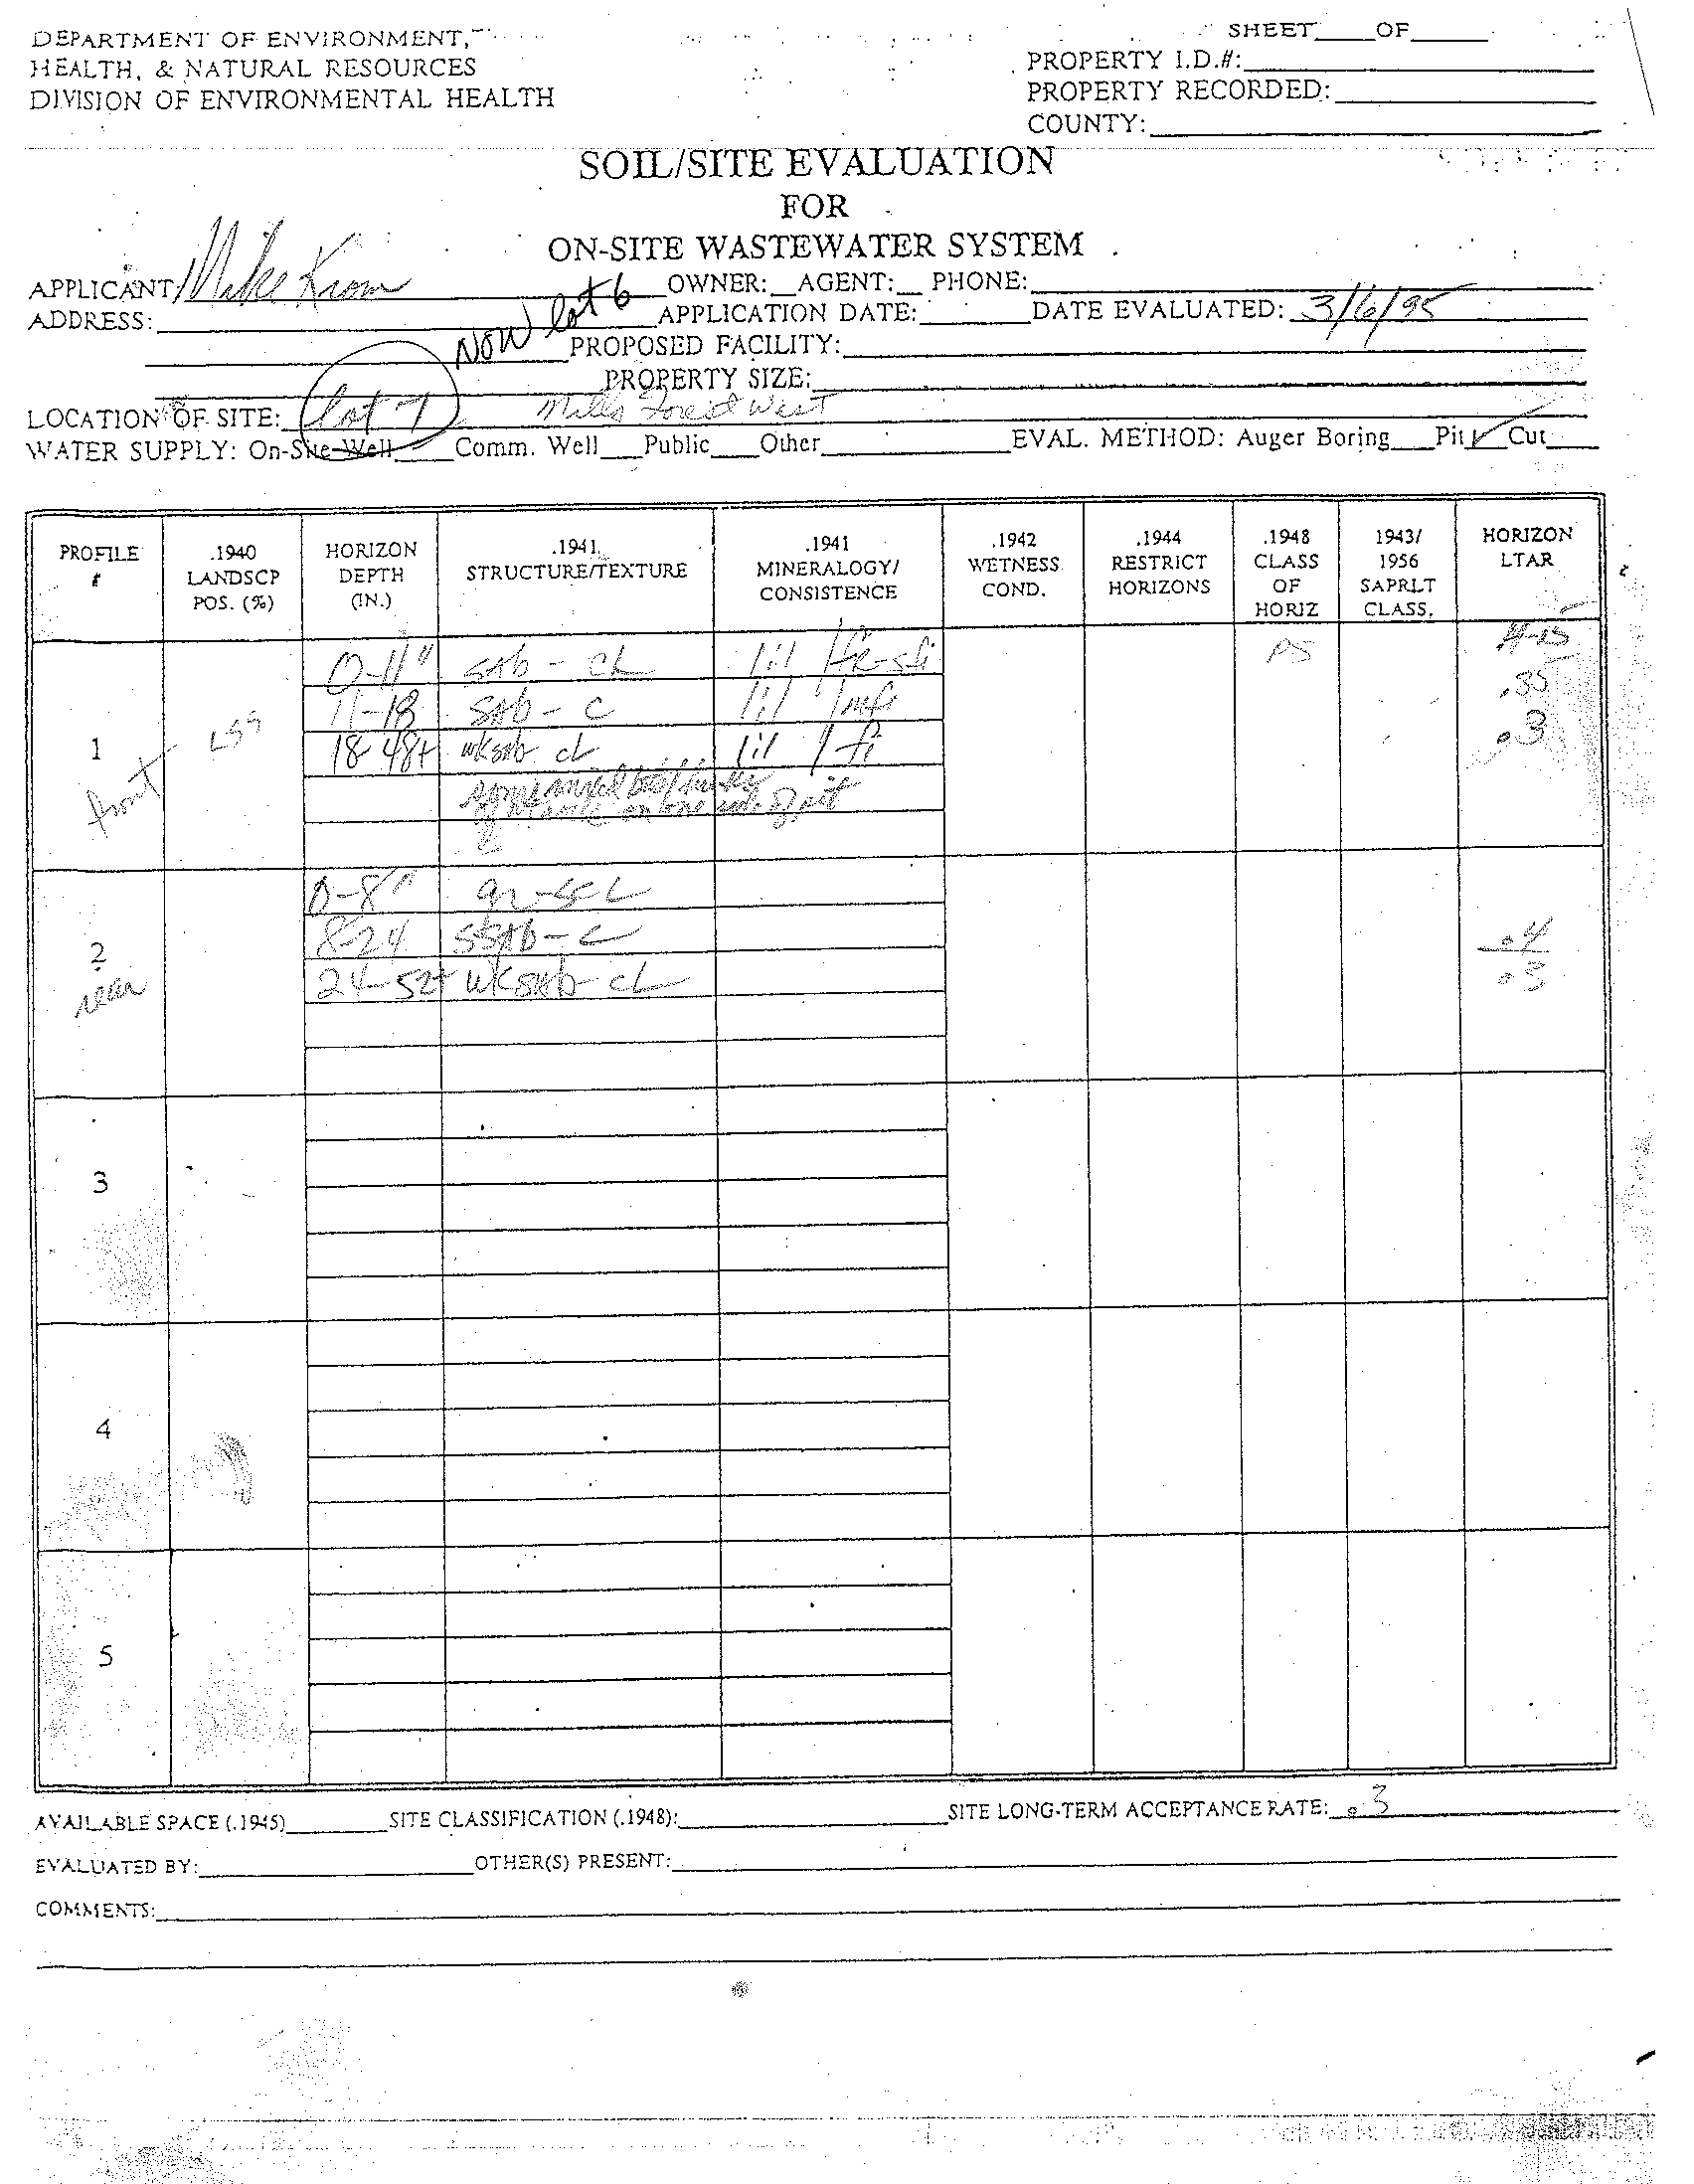 SHEET____OF____
DEPARTMENT OF ENVIRONMENT,
HEALTH, & NATURAL RESOURCES
DIVISION OF ENVIRONMENTAL HEALTH
PROPERTY I.D.#:
PROPERTY RECORDED:
COUNTY:
SOIL/SITE EVALUATION
FOR
ON-SITE WASTEWATER SYSTEM
APPLICANT Mike Krom OWNER:__AGENT:__ PHONE:
ADDRESS: Now lot 6 APPLICATION DATE: DATE EVALUATED: 3/6/95
PROPOSED FACILITY:
PROPERTY SIZE:
LOCATION OF SITE: Lot 7 Mills Forest West
WATER SUPPLY: On-Site Well____Comm. Well___Public____Other____EVAL. METHOD: Auger Boring___Pit ✓ Cut
PROFILE # .1940 LANDSCP POS. (%) HORIZON DEPTH (IN.) .1941 STRUCTURE/TEXTURE .1941 MINERALOGY/ CONSISTENCE .1942 WETNESS COND. .1944 RESTRICT HORIZONS .1948 CLASS OF HORIZ 1943/ 1956 SAPRLT CLASS. HORIZON LTAR
0-11" sab - cL 1:1 / fr-sfi PS
11-18 sab - c 1:1 / mfi .35
1 front LSS 18-48+ wksab cL 1:1 / fi .3
on one side of pit
0-8" gr-scL
2 rear 8-24 ssab-c .4
24-52+ wksab-cL .3
3
4
5
AVAILABLE SPACE (.1945) SITE CLASSIFICATION (.1948): SITE LONG-TERM ACCEPTANCE RATE: .3
EVALUATED BY: OTHER(S) PRESENT:
COMMENTS: